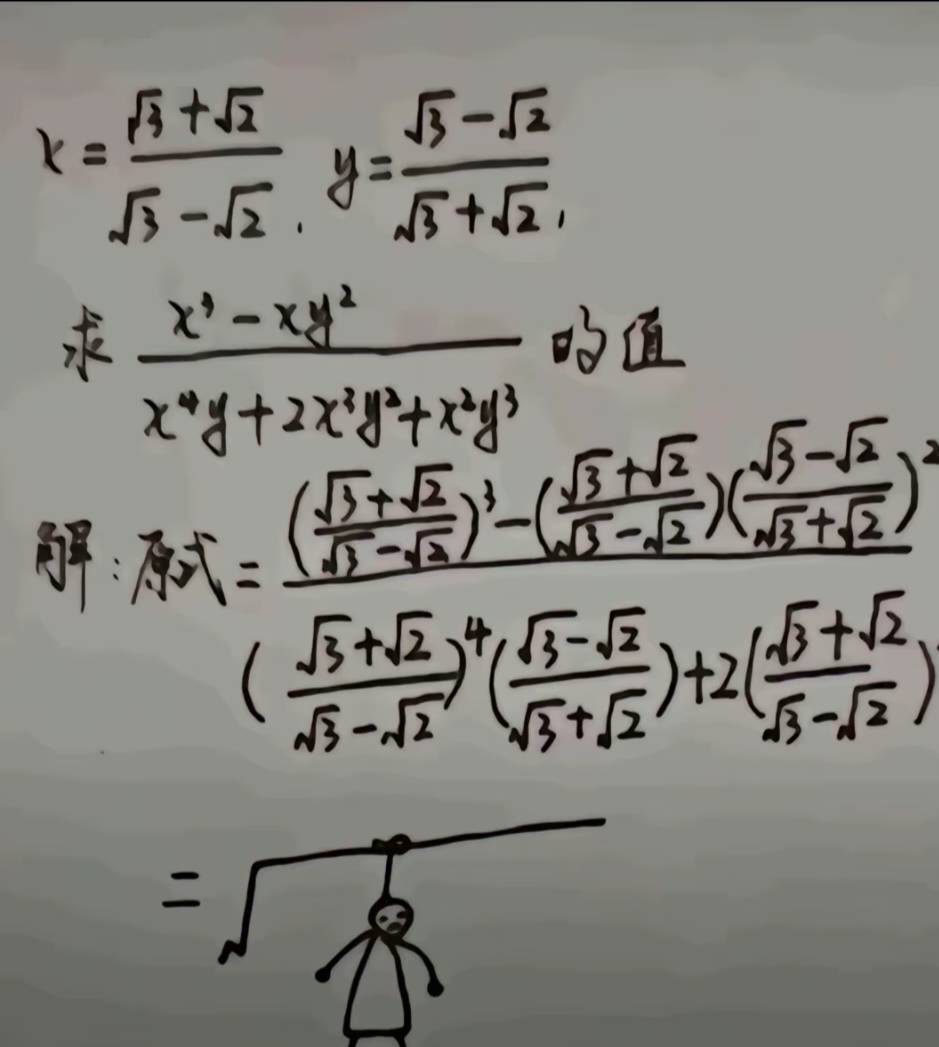 x = (√3+√2)/(√3-√2), y = (√3-√2)/(√3+√2),
求 (x³-xy²)/(x⁴y+2x³y²+x²y³) 的值
解:原式= (((√3+√2)/(√3-√2))³-((√3+√2)/(√3-√2))((√3-√2)/(√3+√2))²)/(((√3+√2)/(√3-√2))⁴((√3-√2)/(√3+√2))+2((√3+√2)/(√3-√2))
= √